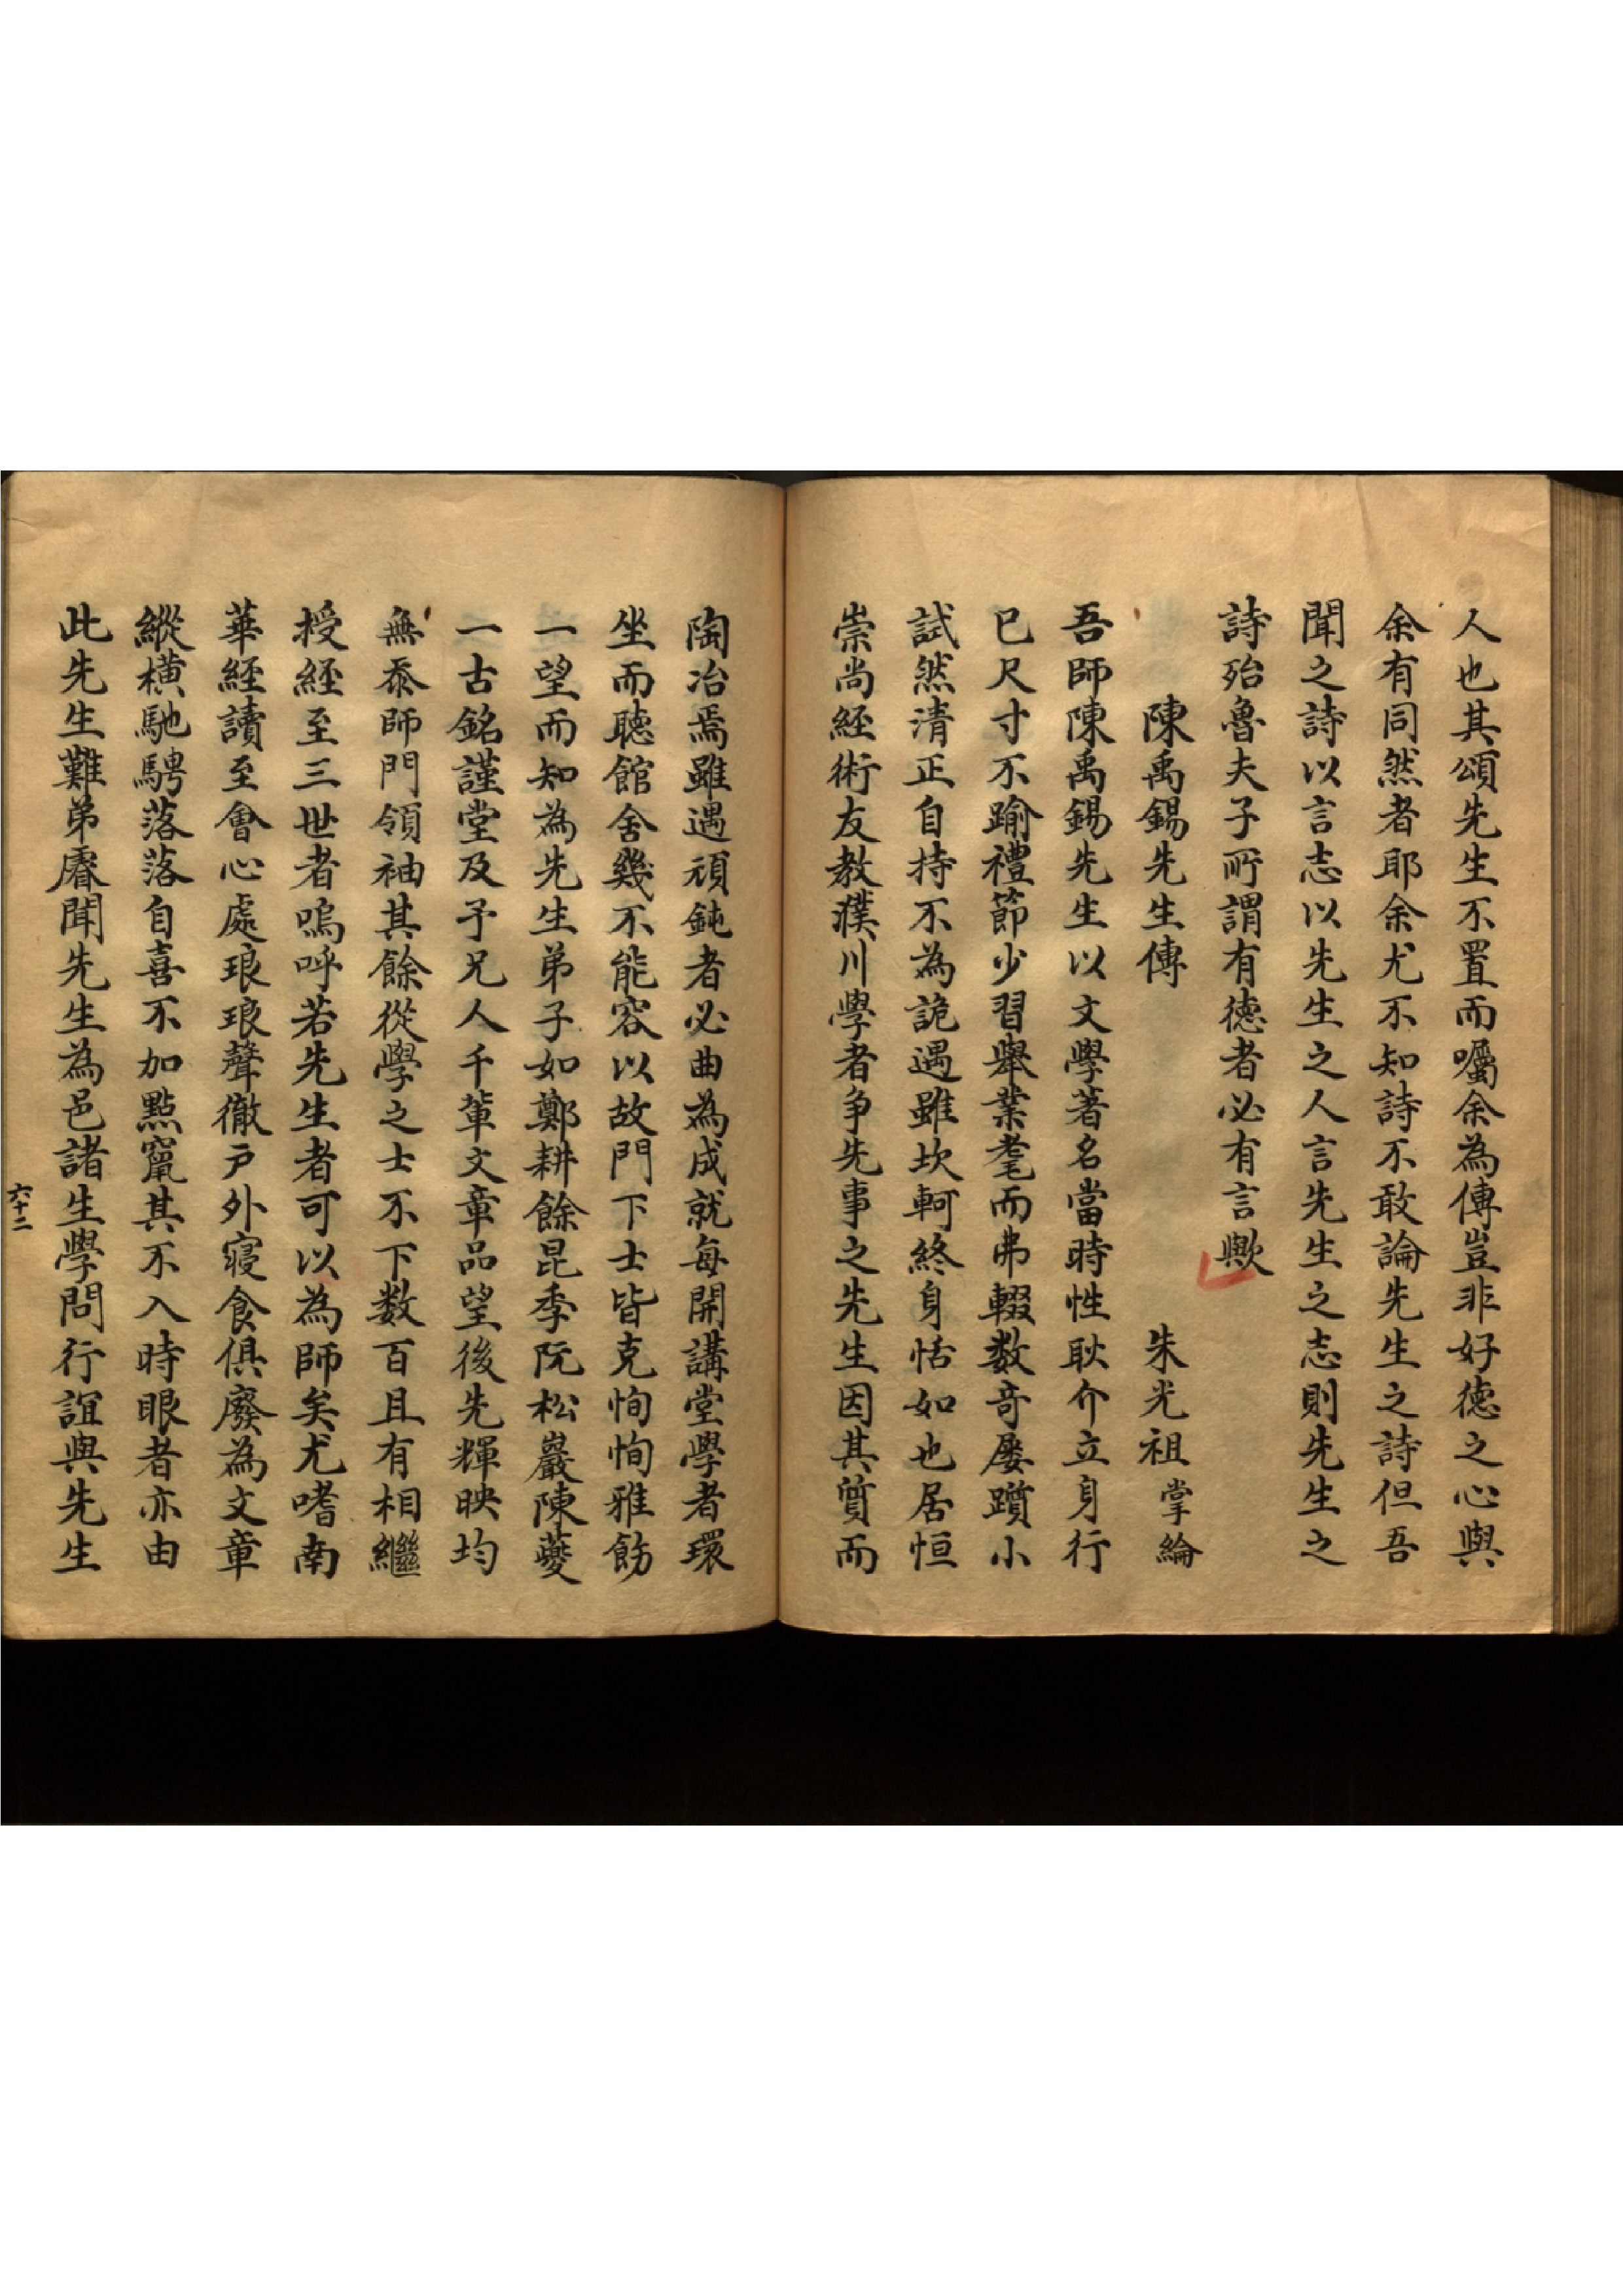 人也其頌先生不置而囑余為傳豈非好德之心與
余有同然者耶余尤不知詩不敢論先生之詩但吾
聞之詩以言志以先生之人言先生之志則先生之
詩殆魯夫子所謂有德者必有言歟
陳禹錫先生傳 朱光祖掌綸
吾師陳禹錫先生以文學著名當時性耿介立身行
已尺寸不踰禮節少習舉業耄而弗輟数奇屡躓小
試然清正自持不為詭遇雖坎軻終身恬如也居恒
崇尚經術友教濮川學者争先事之先生因其質而
陶冶焉雖遇頑鈍者必曲為成就每開講堂學者環
坐而聴館舍幾不能容以故門下士皆克恂恂雅飭
一望而知為先生弟子如鄭耕餘昆季阮松巖陳夔
一古銘謹堂及予兄人千輩文章品望後先輝映均
無忝師門領袖其餘從學之士不下数百且有相繼
授經至三世者嗚呼若先生者可以為師矣尤嗜南
華經讀至會心處琅琅聲徹戸外寢食俱廢為文章
縱橫馳騁落落自喜不加點竄其不入時眼者亦由
此先生難弟睿聞先生為邑諸生學問行誼與先生
六十二